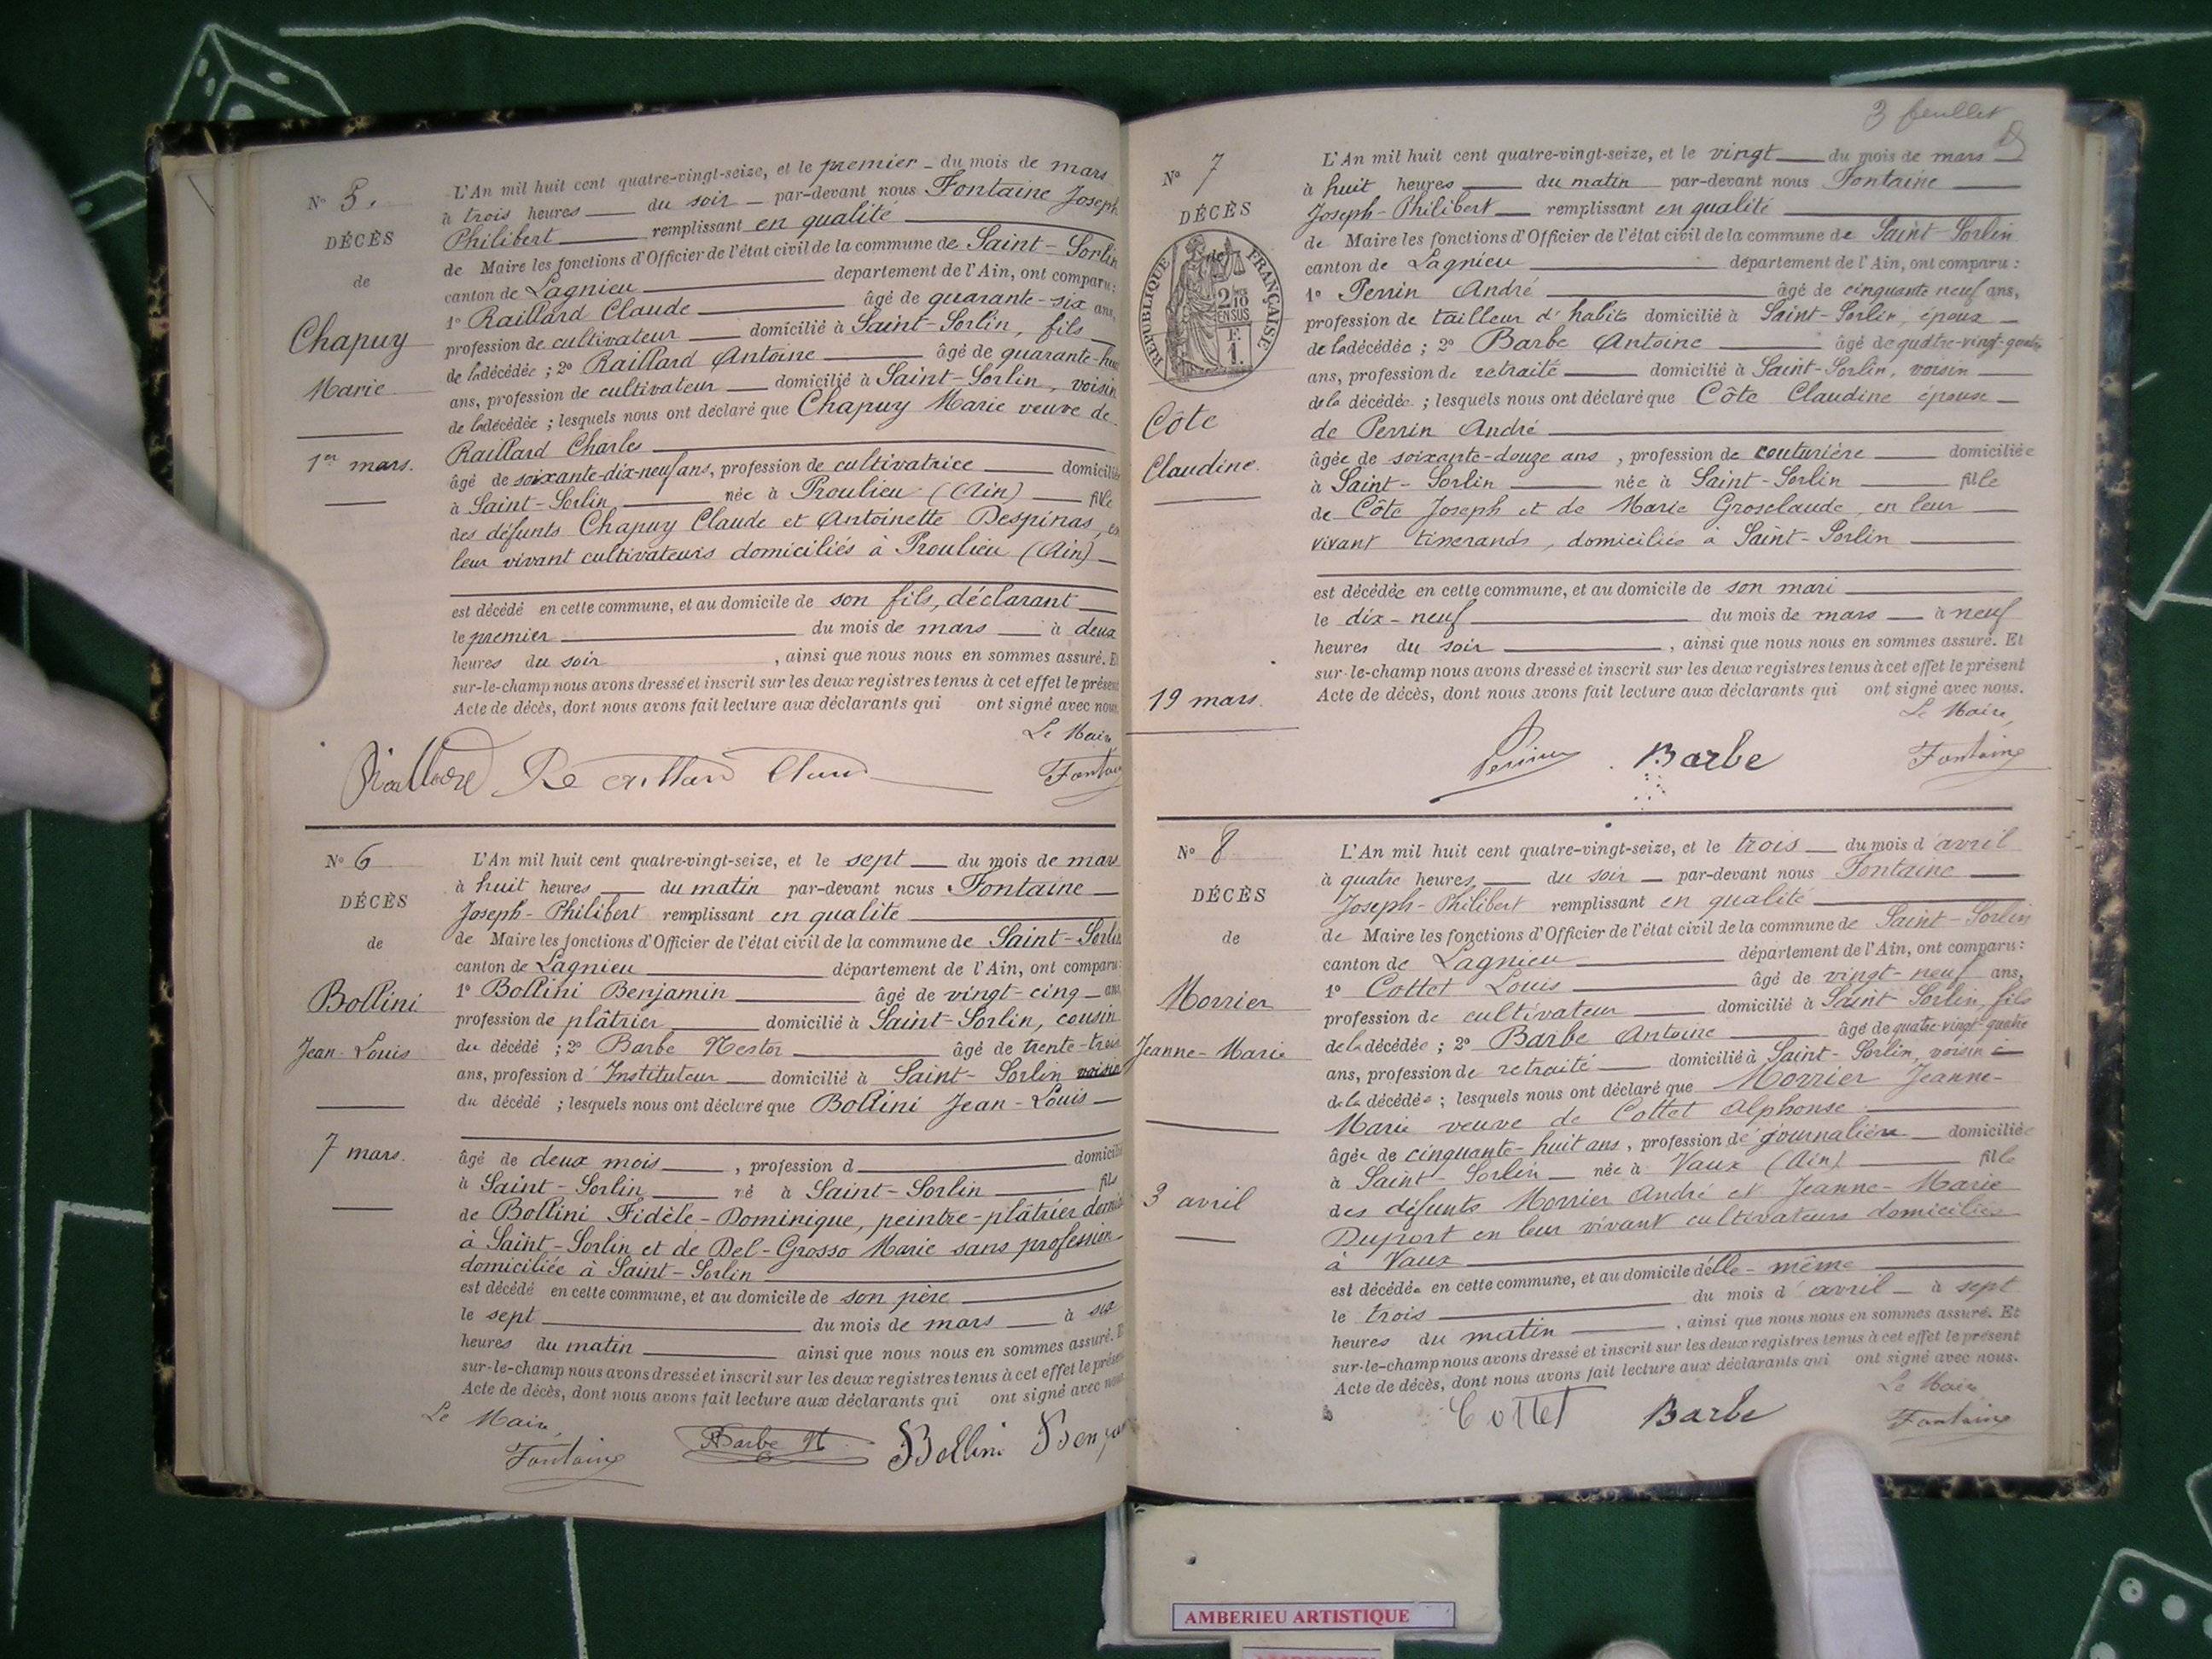 Nº 5.
DÉCÈS
de
Chapuy
Marie
1er mars.
L'An mil huit cent quatre-vingt-seize, et le premier du mois de mars
à trois heures du soir par-devant nous Fontaine Joseph
Philibert remplissant en qualité
de Maire les fonctions d'Officier de l'état civil de la commune de Saint-Sorlin
canton de Lagnieu département de l'Ain, ont comparu:
1º Raillard Claude âgé de quarante-six ans,
profession de cultivateur domicilié à Saint-Sorlin, fils
de la décédée ; 2º Raillard Antoine âgé de quarante-huit
ans, profession de cultivateur domicilié à Saint-Sorlin, voisin
de la décédée ; lesquels nous ont déclaré que Chapuy Marie veuve de
Raillard Charles
âgé de soixante-dix-neuf ans, profession de cultivatrice domiciliée
à Saint-Sorlin née à Proulieu (Ain) fille
des défunts Chapuy Claude et Antoinette Despinas, en
leur vivant cultivateurs domiciliés à Proulieu (Ain)
est décédé en cette commune, et au domicile de son fils, déclarant
le premier du mois de mars à deux
heures du soir , ainsi que nous nous en sommes assuré. Et
sur-le-champ nous avons dressé et inscrit sur les deux registres tenus à cet effet le présent
Acte de décès, dont nous avons fait lecture aux déclarants qui ont signé avec nous.
Le Maire
Fontaine
Nº 6
DÉCÈS
de
Bollini
Jean-Louis
7 mars.
L'An mil huit cent quatre-vingt-seize, et le sept du mois de mars
à huit heures du matin par-devant nous Fontaine
Joseph-Philibert remplissant en qualité
de Maire les fonctions d'Officier de l'état civil de la commune de Saint-Sorlin
canton de Lagnieu département de l'Ain, ont comparu:
1º Bollini Benjamin âgé de vingt-cinq ans
profession de plâtrier domicilié à Saint-Sorlin, cousin
du décédé ; 2º Barbe Nestor âgé de trente-trois
ans, profession d'Instituteur domicilié à Saint-Sorlin voisin
du décédé ; lesquels nous ont déclaré que Bollini Jean-Louis
âgé de deux mois , profession d domicilié
à Saint-Sorlin né à Saint-Sorlin fils
de Bollini Fidèle-Dominique, peintre-plâtrier domicilié
à Saint-Sorlin et de Del-Grosso Marie sans profession
domiciliée à Saint-Sorlin
est décédé en cette commune, et au domicile de son père
le sept du mois de mars à six
heures du matin ainsi que nous nous en sommes assuré. Et
sur-le-champ nous avons dressé et inscrit sur les deux registres tenus à cet effet le présent
Acte de décès, dont nous avons fait lecture aux déclarants qui ont signé avec nous.
Le Maire,
Fontaine Barbe N. Bollini Benj
3 feuillet
Nº 7
DÉCÈS
de
RÉPUBLIQUE FRANÇAISE
2/10 EN SUS
F. 1.
Côte
Claudine.
19 mars.
L'An mil huit cent quatre-vingt-seize, et le vingt du mois de mars
à huit heures du matin par-devant nous Fontaine
Joseph-Philibert remplissant en qualité
de Maire les fonctions d'Officier de l'état civil de la commune de Saint-Sorlin
canton de Lagnieu département de l'Ain, ont comparu:
1º Perrin André âgé de cinquante neuf ans,
profession de tailleur d'habits domicilié à Saint-Sorlin, époux
de la décédée ; 2º Barbe Antoine âgé de quatre-vingt-quatre
ans, profession de retraité domicilié à Saint-Sorlin, voisin
de la décédée ; lesquels nous ont déclaré que Côte Claudine épouse
de Perrin André
âgée de soixante-douze ans , profession de couturière domiciliée
à Saint-Sorlin née à Saint-Sorlin fille
de Côte Joseph et de Marie Groselaude, en leur
vivant tisserands, domiciliés à Saint-Sorlin
est décédée en cette commune, et au domicile de son mari
le dix-neuf du mois de mars à neuf
heures du soir , ainsi que nous nous en sommes assuré. Et
sur-le-champ nous avons dressé et inscrit sur les deux registres tenus à cet effet le présent
Acte de décès, dont nous avons fait lecture aux déclarants qui ont signé avec nous.
Le Maire,
Perrin Barbe Fontaine
Nº 8
DÉCÈS
de
Morrier
Jeanne-Marie
3 avril
L'An mil huit cent quatre-vingt-seize, et le trois du mois d'avril
à quatre heures du soir par-devant nous Fontaine
Joseph-Philibert remplissant en qualité
de Maire les fonctions d'Officier de l'état civil de la commune de Saint-Sorlin
canton de Lagnieu département de l'Ain, ont comparu:
1º Cottet Louis âgé de vingt-neuf ans,
profession de cultivateur domicilié à Saint Sorlin, fils
de la décédée ; 2º Barbe Antoine âgé de quatre-vingt-quatre
ans, profession de retraité domicilié à Saint-Sorlin, voisin
de la décédée ; lesquels nous ont déclaré que Morrier Jeanne-
Marie veuve de Cottet Alphonse
âgée de cinquante-huit ans, profession de journalière domiciliée
à Saint-Sorlin née à Vaux (Ain) fille
des défunts Morrier André et Jeanne-Marie
Duport en leur vivant cultivateurs domiciliés
à Vaux
est décédée en cette commune, et au domicile d'elle-même
le trois du mois d'avril à sept
heures du matin , ainsi que nous nous en sommes assuré. Et
sur-le-champ nous avons dressé et inscrit sur les deux registres tenus à cet effet le présent
Acte de décès, dont nous avons fait lecture aux déclarants qui ont signé avec nous.
Le Maire
Cottet Barbe Fontaine
AMBERIEU ARTISTIQUE
AMBERIEU